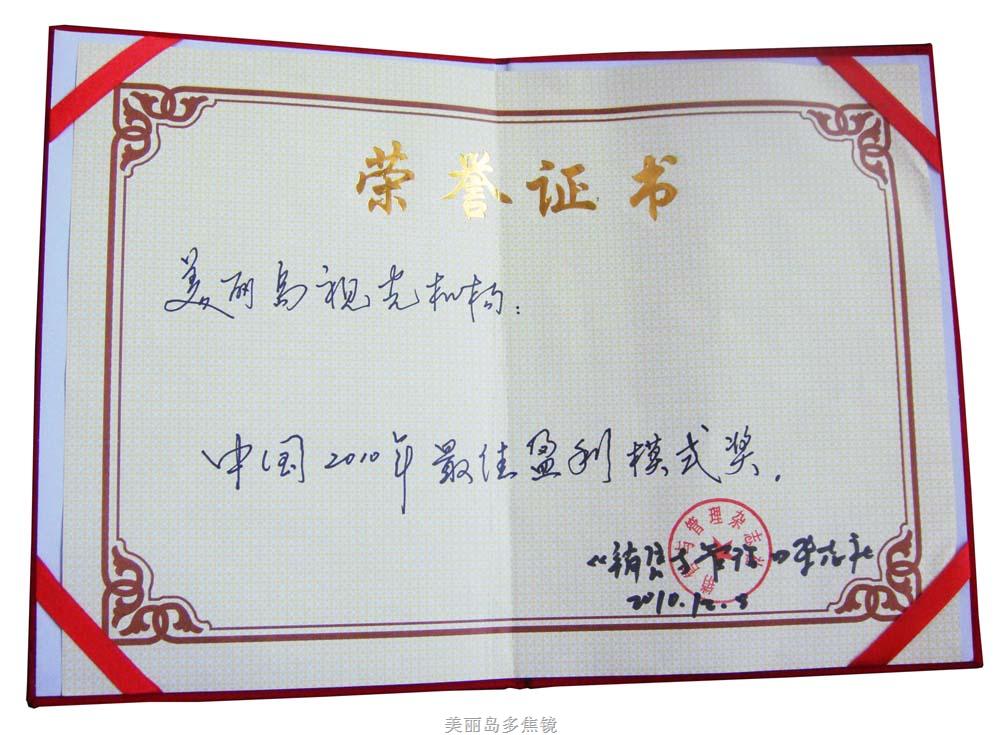 荣誉证书
美丽岛视光机构：
中国2010年最佳盈利模式奖.
《销售与管理》杂志社
2010.12.8
美丽岛多焦镜